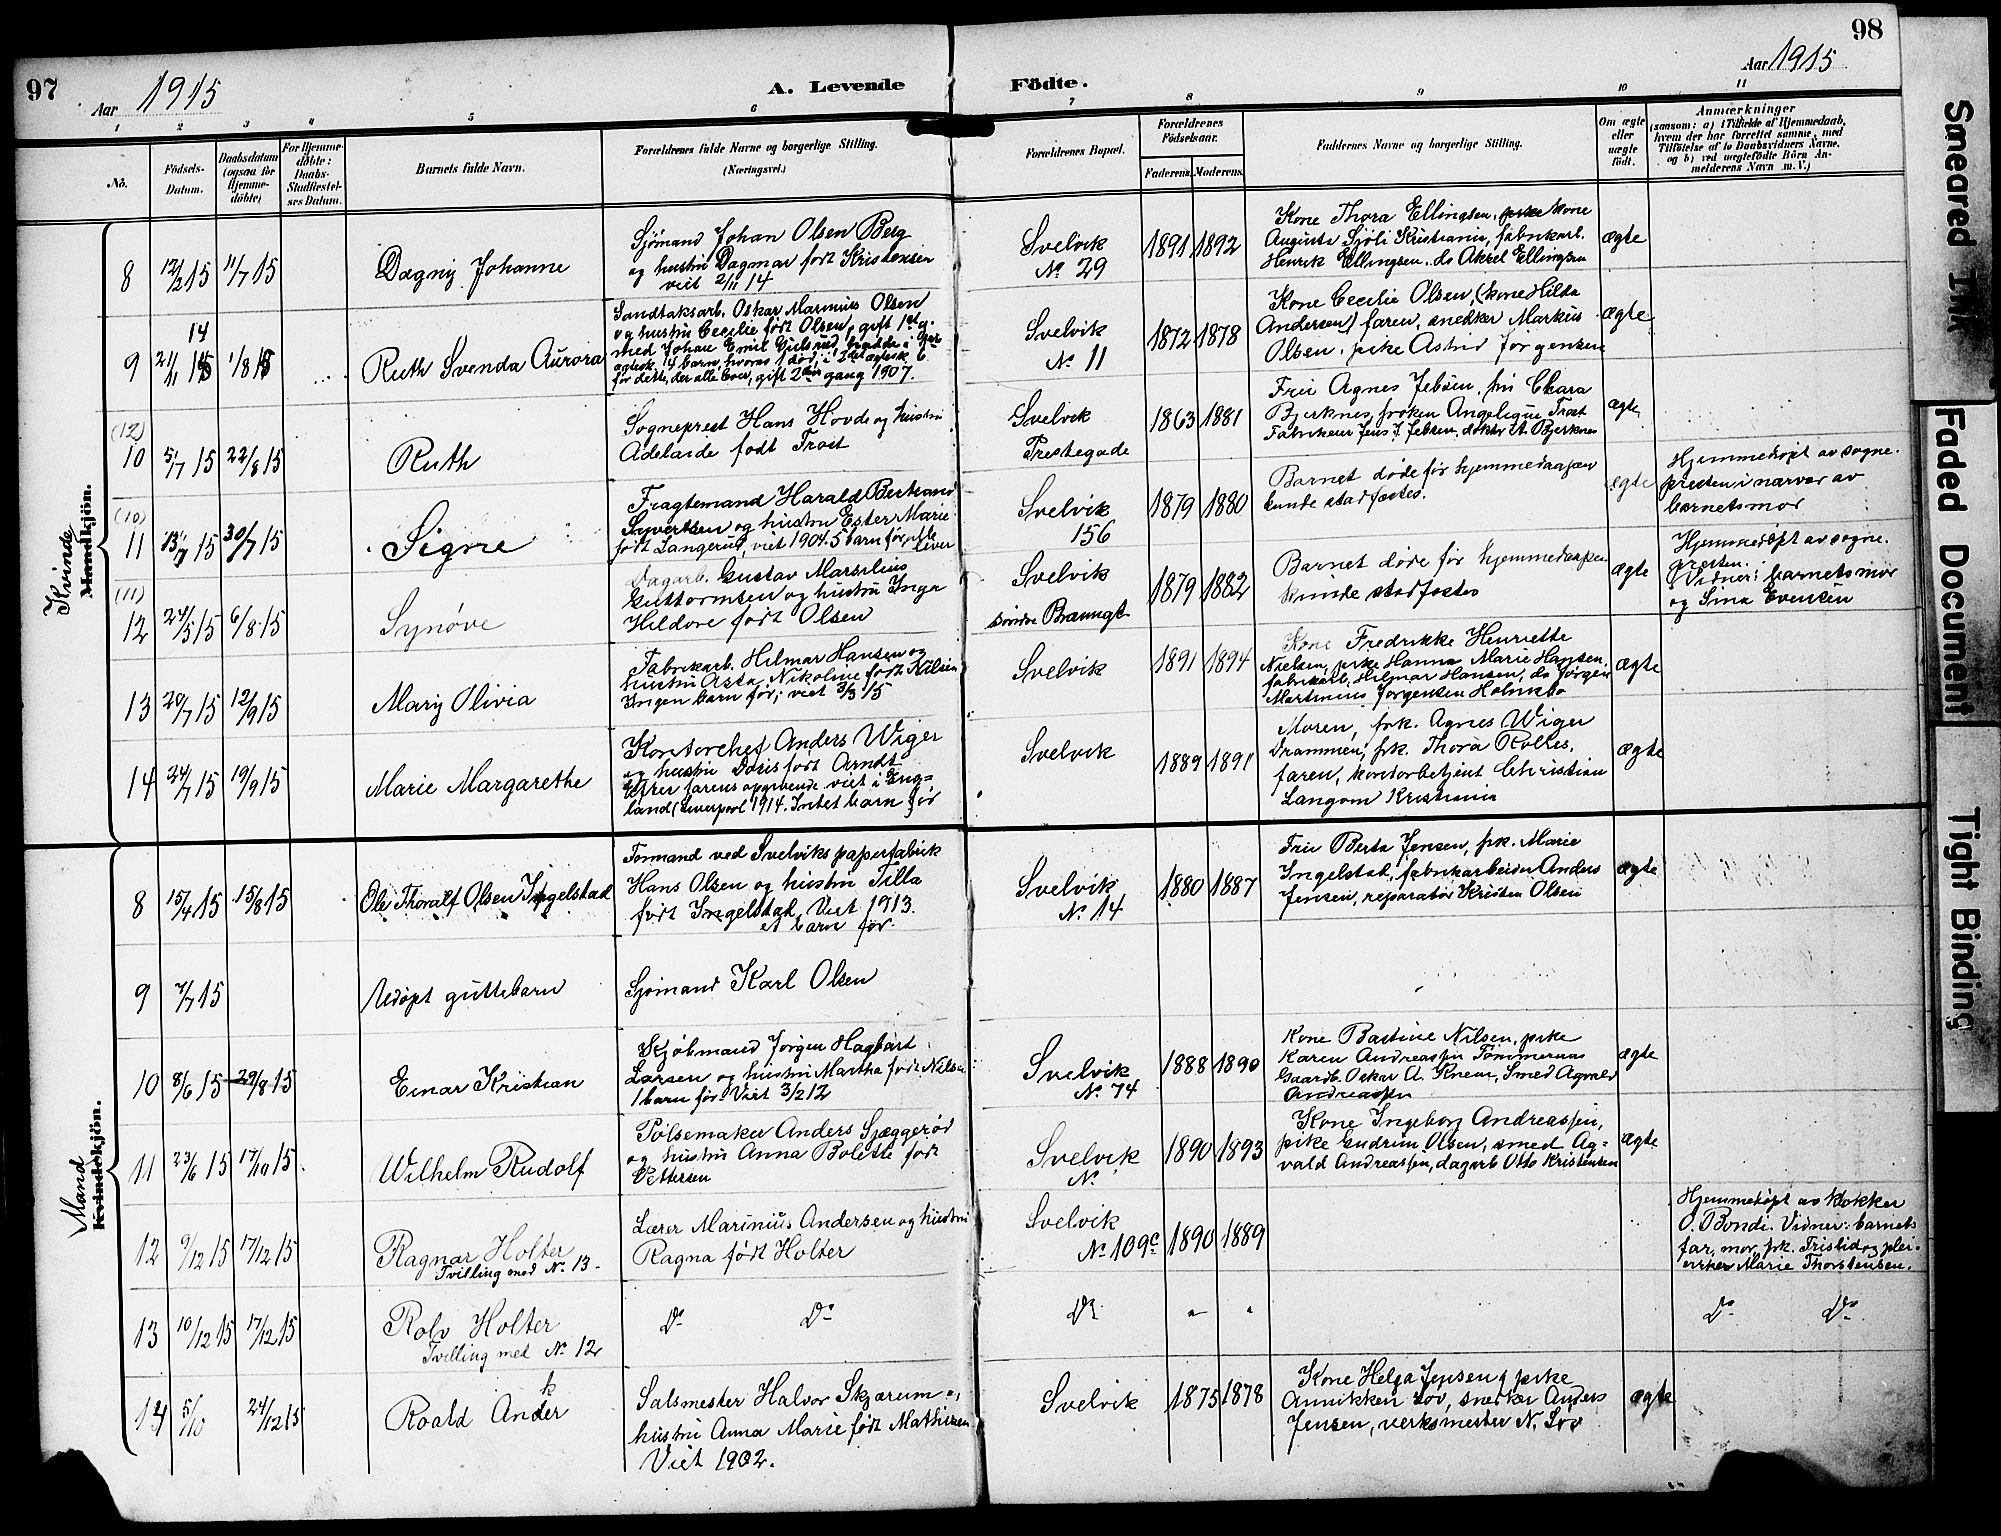 97
98
Aar 1915
A. Levende Födte.
Aar 1915
1 2 3 4 5 6 7 8 9 10 11
No.
Födsels-Datum.
Daabsdatum (ogsaa for Hjemme-döbte)
For Hjemme-döbte: Daabs-Stadfæstel-ses Datum.
Barnets fulde Navn.
Forældrenes fulde Navne og borgerlige Stilling.
(Næringsvei.)
Forældrenes Bopæl.
Forældrenes Födselsaar.
Faderens. Moderens.
Faddernes Navne og borgerlige Stilling.
Om ægte eller uægte födt.
Anmærkninger
(saasom: a) i Tilfælde af Hjemmedaab,
hvem der har forrettet samme, med
Tilföielse af to Daabsvidners Navne,
og b) ved uægtefödte Börn An-
melderens Navn m.V.)
Kvinde
Mandkjön.
8 12/2 15 11/7 15 Dagny Johanne
Sjømand Johan Olsen Berg
og hustru Dagmar født Kristensen
viet 2/11 14
Svelvik
No 29
1891 1892
Kone Thora Ellingsen, kone
Augusta Sjöli Kristiania, fabrikarb.
Henrik Ellingsen, do Aksel Ellingsen
ægte
14
9 21/11 1/8 15 Ruth Svenda Aurora
Sandtaksarb. Oskar Marinius Olsen
og hustru Cecilie født Olsen, gift 1ste g.
med Johan Emil
ægtesk. 4 barn, hvorav 1 død, i ægtesk. 6
før dette, der alle lever, gift 2den gang 1907.
Svelvik
No 11
1872 1878
Kone Cecilie Olsen, (kone Hilda
Andersen) faren, snekker Markus
Olsen, pike Astrid Jørgensen
ægte
(12)
10 5/7 15 22/8 15 Ruth
Sogneprest Hans Hovde og hustru
Adelaide født Trost
Svelvik
Prestegade
1863 1881
Frue Agnes Jebsen, fru Chara
Bjerknes, frøken Angelique Trost
Fabrikeier Jens J. Jebsen, doktor A. Bjerknes
ægte
(10)
11 13/7 15 30/7 15 Signe
Fragtemand Harald Bertrand
Syvertsen og hustru Ester Marie
født Langerud, viet 1904. 5 barn før, alle
lever
Svelvik
156
1879 1880
Barnet døde før hjemmedaapen
kunde stadfæstes.
ægte
Hjemmedøpt av sogne-
presten i nærvær av
barnets mor
(11)
12 24/5 15 6/8 15 Synøve
Dagarb. Gustav Marselius
Guttormsen og hustru Inga
Hildore født Olsen
Svelvik
søndre Brangt
1879 1882
Barnet døde før hjemmedaapen
kunde stadfæstes
ægte
Hjemmedøpt av sogne-
presten.
(Vidner: barnets mor
og Sina Evensen
13 20/7 15 12/9 15 Mary Olivia
Fabrikarb. Hilmar Hansen og
hustru Asta Nikoline født Nilsen
Ingen barn før; viet 3/3 15
Svelvik
1891 1894
Kone Fredrikke Henriette
Nielsen, pike Hanna Marie Hansen,
fabrikarb. Hilmar Hansen, do Jørgen
Martinius Jørgensen Holmsbo
ægte
14 24/7 15 19/9 15 Marie Margarethe
Kontorchef Anders Wiger
og hustru Doris født Arndt
Efter farens opgivende viet i Eng-
land (Liverpool 1914. Intet barn før
Svelvik
1889 1891
Moren, frk. Agnes Wiger
Drammen, frk. Thora Rolles,
faren, kontorbetjent Christian
Langom Kristiania
ægte
Mand
Kvindekjön.
8 15/4 15 15/8 15 Ole Thoralf Olsen Ingelstad
Formand ved Svelviks papirfabrik
Hans Olsen og hustru Tilla
født Ingelstad, Viet 1913.
et barn før.
Svelvik
No 14
1880 1887
Frue Berta Jensen, frk. Marie
Ingelstad, fabrikarbeider Anders
Jensen, reparatør Kristen Olsen
ægte
9 7/7 15 Udøpt guttebarn
Sjømand Karl Olsen
10 8/6 15 29/8 15 Einar Kristian
Kjøbmand Jørgen Hagbart
Larsen og hustru Martha født Nilsen
1 barn før. Viet 3/2 12
Svelvik
No 74
1888 1890
Kone Bastine Nilsen, pike
Karen Andreassen Tømmeraas
Gaardb. Oskar A. Knem, Smed Agvald
Andreassen
ægte
11 23/6 15 17/10 15 Wilhelm Rudolf
Pølsemaker Anders Sjæggerød
og hustru Anna Bolette født
Pettersen
Svelvik
No
1890 1893
Kone Ingeborg Andreassen,
pike Gudrun Olsen, smed Ag-
vald Andreassen, dagarb Otto Kristensen
ægte
12 9/12 15 17/12 15 Ragnar Holter
Tvilling med No. 13
Lærer Marinius Andersen og hustru
Ragna født Holter
Svelvik
No 109c
1890 1889
Hjemmedøpt av klokker
O. Bondi. Vidner: barnets
far, mor, frk. Fristid og plei-
erske Marie Thorstensen.
13 10/12 15 17/12 15 Rolv Holter
Tvilling med No 12
Do Do
Do " "
Do Do
14 5/10 24/12 15 Roald Ander
k
Salsmester Halvor Skjærum og
hustru Anna Marie født Mathisen
Viet 1902.
Svelvik
1875 1878
Kone Helga Jensen, pike
Annikken Lov, snekker Anders
Jensen, verksmester N. Lov
ægte
Smeared Ink
Faded Document
Tight Binding